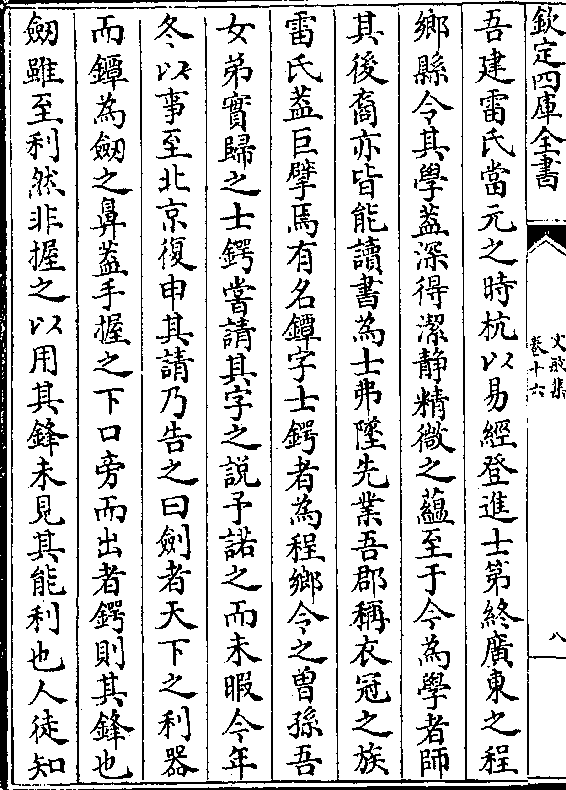 欽定四庫全書
文敏集
卷十六
八
吾建雷氏當元之時杭以易經登進士第終廣東之程
鄉縣令其學葢深得潔静精微之蘊至于今為學者師
其後裔亦皆能讀書為士弗墜先業吾郡稱衣冠之族
雷氏葢巨擘焉有名鐔字士鍔者為程鄉令之曽孫吾
女弟實歸之士鍔嘗請其字之説予諾之而未暇今年
冬以事至北京復申其請乃告之曰劍者天下之利器
而鐔為劒之鼻葢手握之下口旁而出者鍔則其鋒也
劒雖至利然非握之以用其鋒未見其能利也人徒知